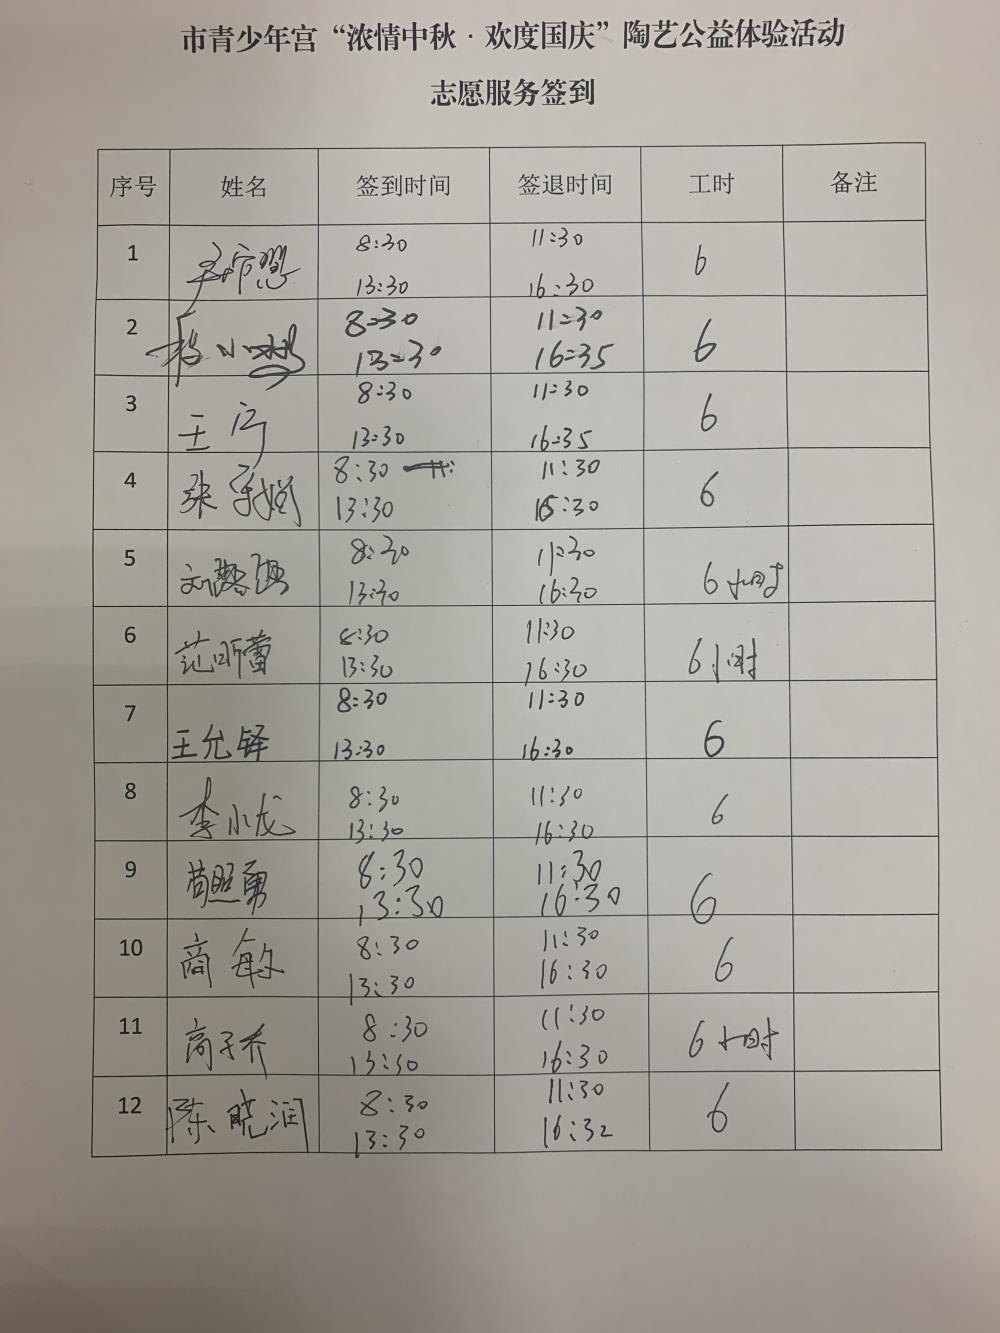 市青少年宫“浓情中秋·欢度国庆”陶艺公益体验活动
志愿服务签到
序号 姓名 签到时间 签退时间 工时 备注
1 8:30 11:30 6
13:30 16:30
2 小 8:30 11:30 6
13:30 16:35
3 王宁 8:30 11:30 6
13:30 16:35
4 张 8:30 11:30 6
13:30 16:30
5 刘 8:30 11:30 6小时
13:30 16:30
6 范昕蕾 8:30 11:30 6小时
13:30 16:30
7 王允铎 8:30 11:30 6
13:30 16:30
8 李小龙 8:30 11:30 6
13:30 16:30
9 苟照勇 8:30 11:30 6
13:30 16:30
10 商敏 8:30 11:30 6
13:30 16:30
11 高子乔 8:30 11:30 6小时
13:30 16:30
12 陈晓润 8:30 11:30 6
13:30 16:32